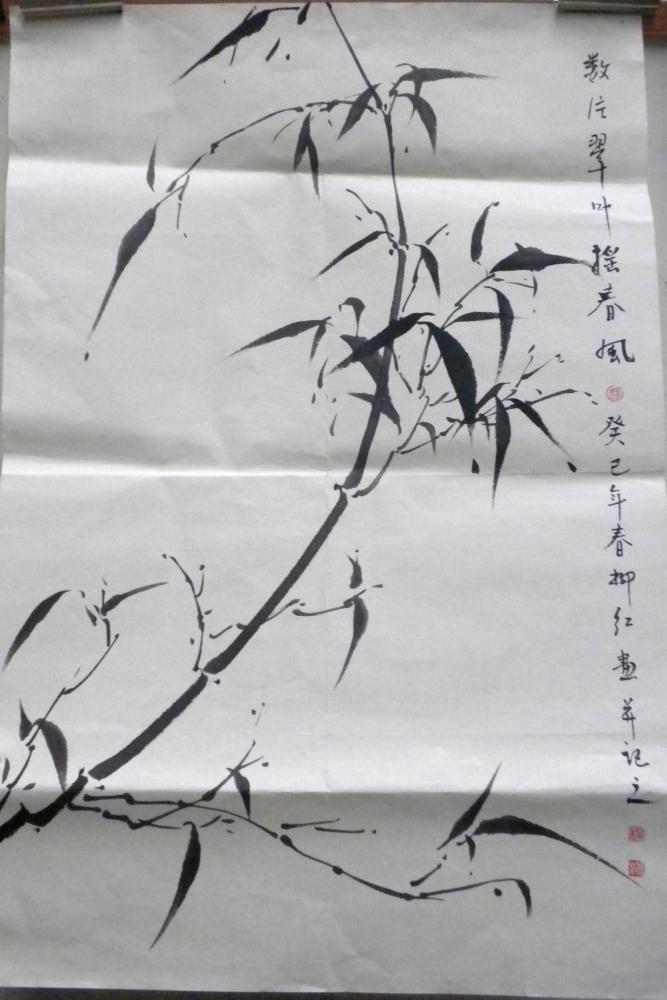 数片翠叶摇春风癸巳年春柳红画并记之